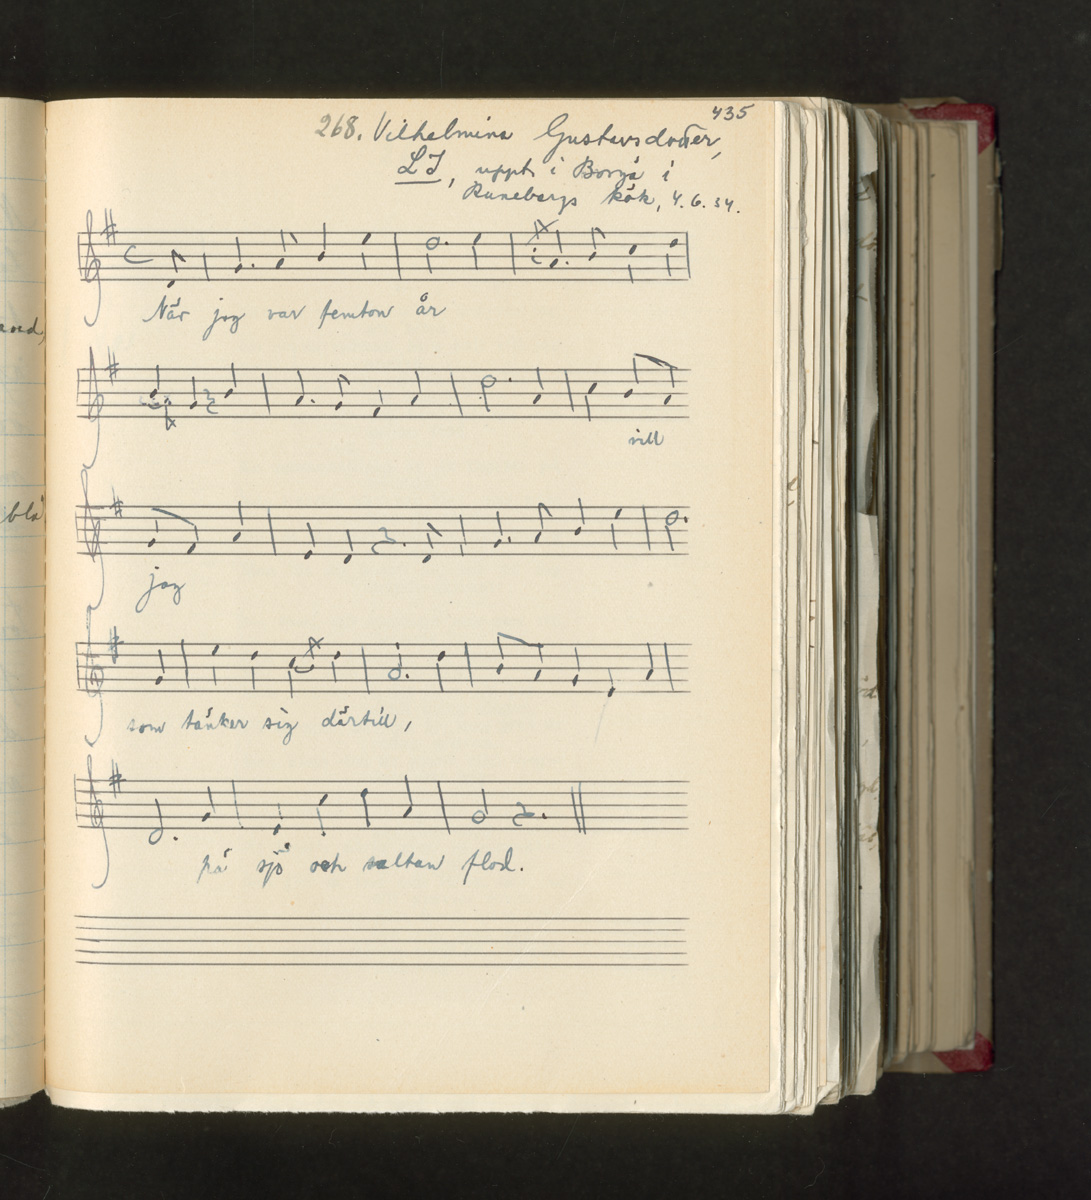 435
268. Vilhelmina Gustavsdotter,
LJ, uppt. i Borgå i
Runebergs kök, 4.6.34.
När jag var femton år
and,
vill
blå
jag
som tänker sig därtill,
på sjö och saltan flod.